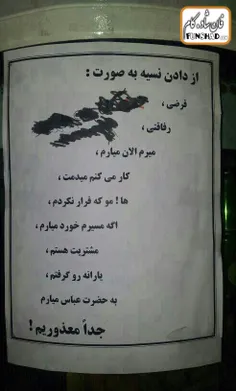 فان شاد . کام
FUNSHAD.COM
از دادن نسیه به صورت :
قرضی ،
رفاقتی ،
میرم الان میارم ،
کار می کنم میدمت ،
ها ! مو که فرار نکردم ،
اگه مسیرم خورد میارم ،
مشتریت هستم ،
یارانه رو گرفتم ،
به حضرت عباس میارم
جداً معذوریم !